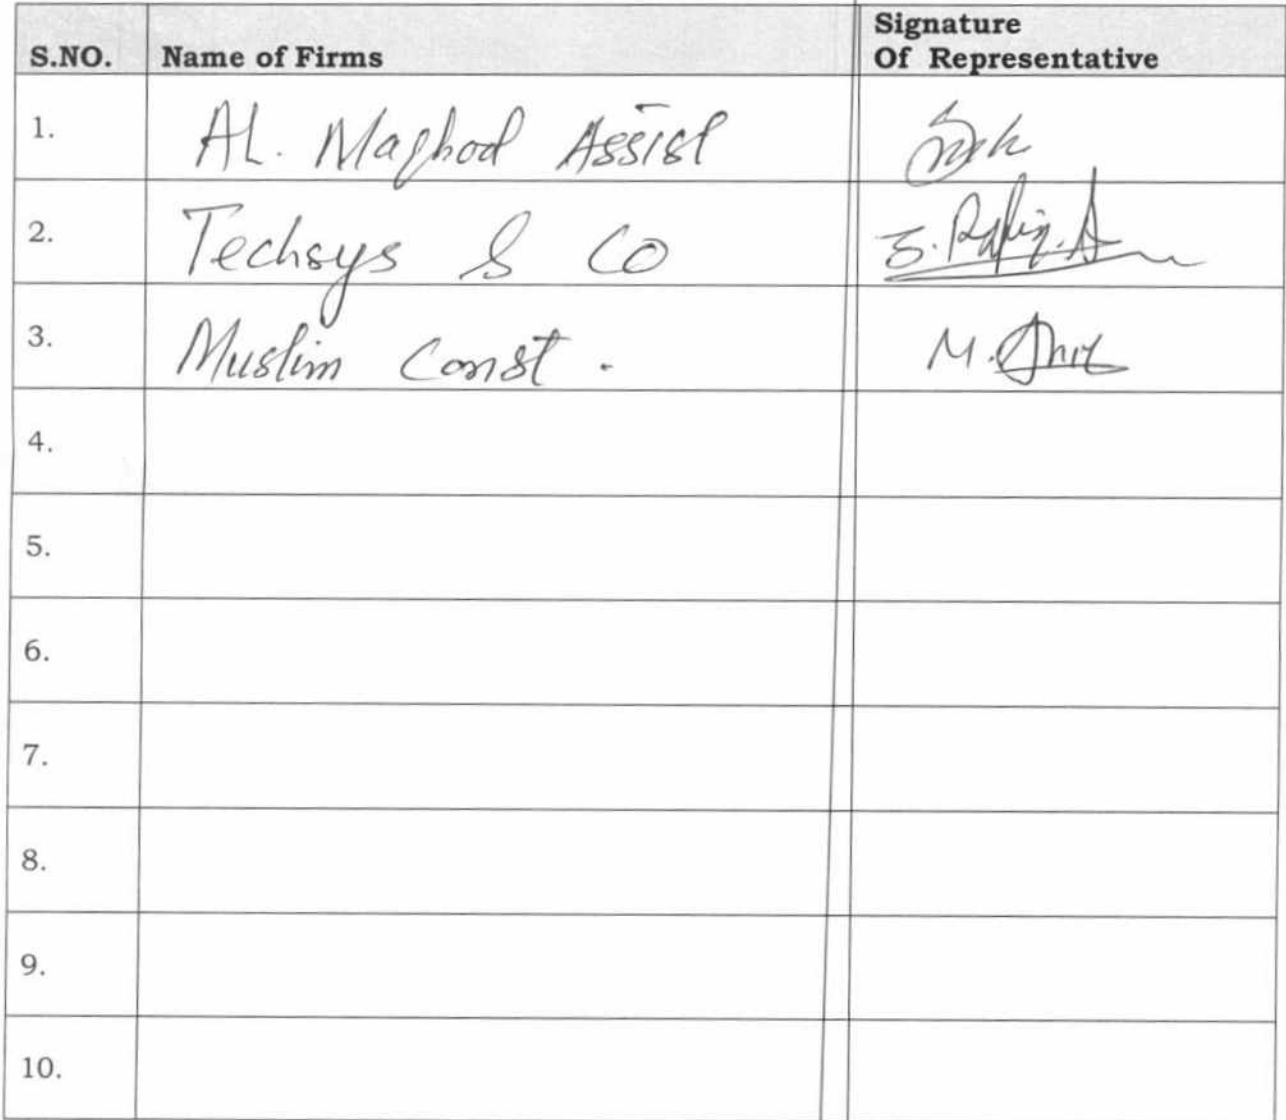 S.NO. Name of Firms Signature Of Representative
1. AL. Maghod Assist
2. Techsys & Co
3. Muslim Const. M.
4.
5.
6.
7.
8.
9.
10.